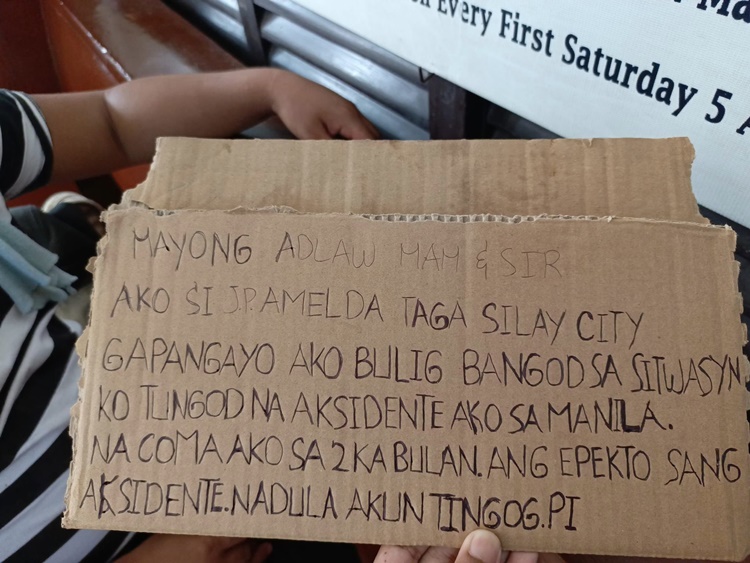 Every First Saturday 5
MAYONG ADLAW MAM & SIR
AKO SI J.P. AMELDA TAGA SILAY CITY
GAPANGAYO AKO BULIG BANGOD SA SITWASYN
KO TUNGOD NA AKSIDENTE AKO SA MANILA.
NA COMA AKO SA 2 KA BULAN. ANG EPEKTO SANG
AKSIDENTE. NADULA AKUN TINGOG. PI